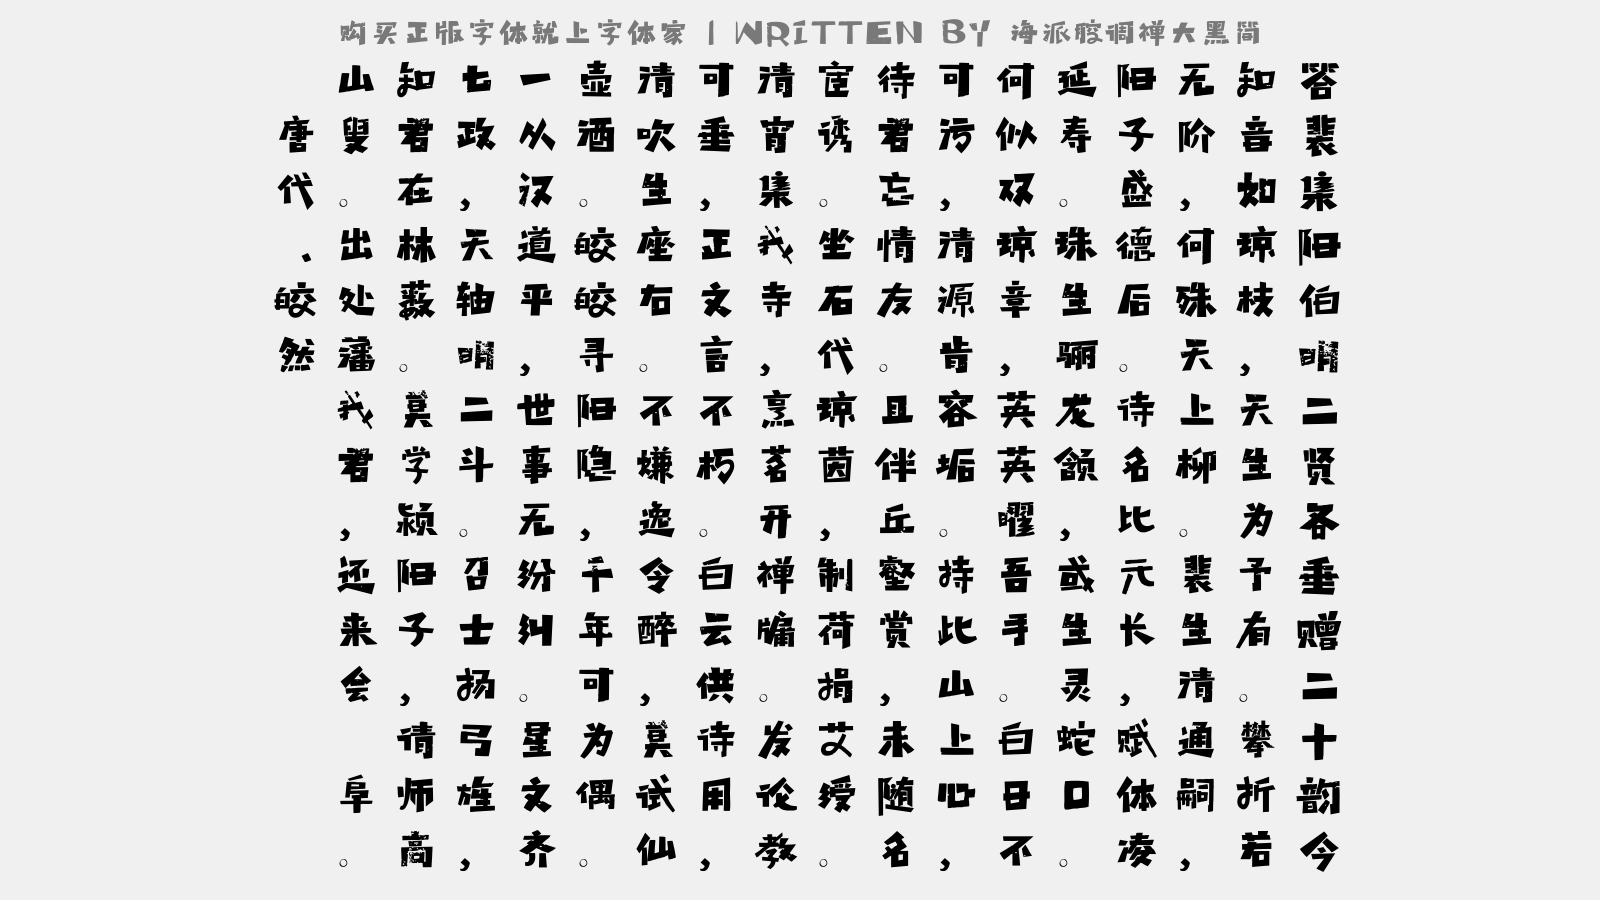 购买正版字体就上字体家 | WRITTEN BY 海派腔调禅大黑简
答裴集阳伯明二贤各垂赠二十韵今
知音如琼枝，天生为予有。攀折若
无阶，何殊天上柳。裴生清通嗣，
阳子盛德后。待名比元长，赋体凌
延寿。珠生骊龙颔，或生灵蛇口。
何似双琼章，英英曜吾手。白日不
可污，清源肯容垢。持此山上心，
待君忘情友。且伴丘壑赏，未随名
宦诱。坐石代琼茵，制荷捐艾绶。
清宵集我寺，烹茗开禅牖。发论教
可垂，正文言不朽。白云供诗用，
清吹生座右。不嫌逸令醉，莫试仙
壶酒。皎皎寻阳隐，千年可为偶。
一从汉道平，世事无纷纠。星文齐
七政，天轴明二斗。召士扬弓旌，
知君在林薮。莫学颍阳子，请师高
山叟。出处藩我君，还来会 阜。
唐代.皎然